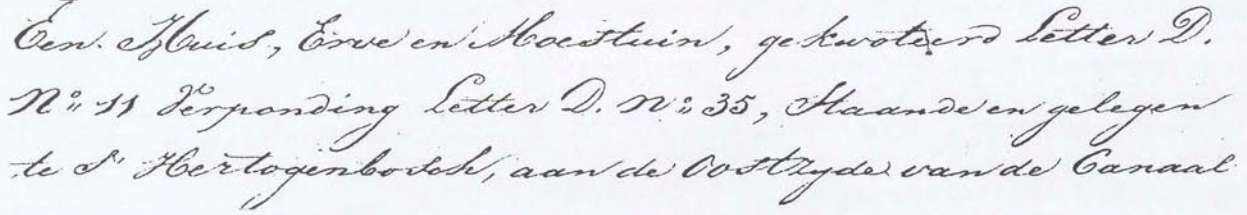 Een Huis, Erve en Moestuin, gekwoteerd Letter D.
N:o 11 Verponding Letter D. N:o 35, Staande en gelegen
te S' Hertogenbosch, aan de Oostzyde van de Canaal